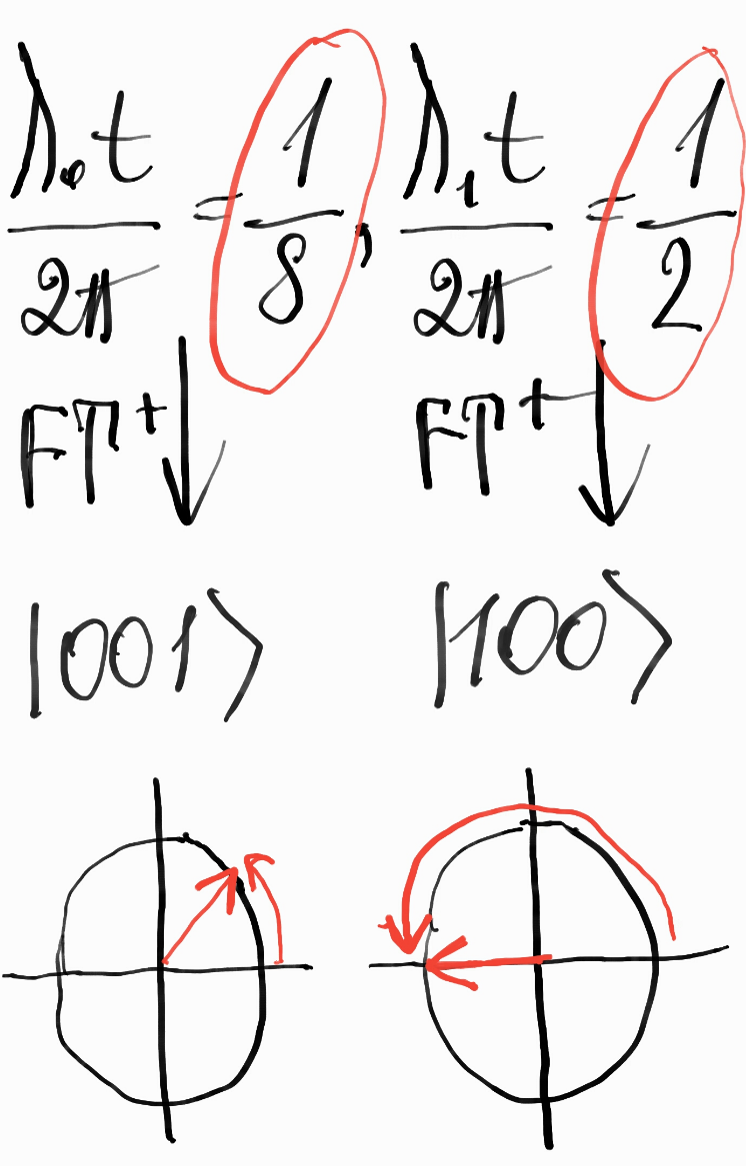 λ₀t/2π = 1/8, λ₁t/2π = 1/2
FT† FT†
|001⟩ |100⟩